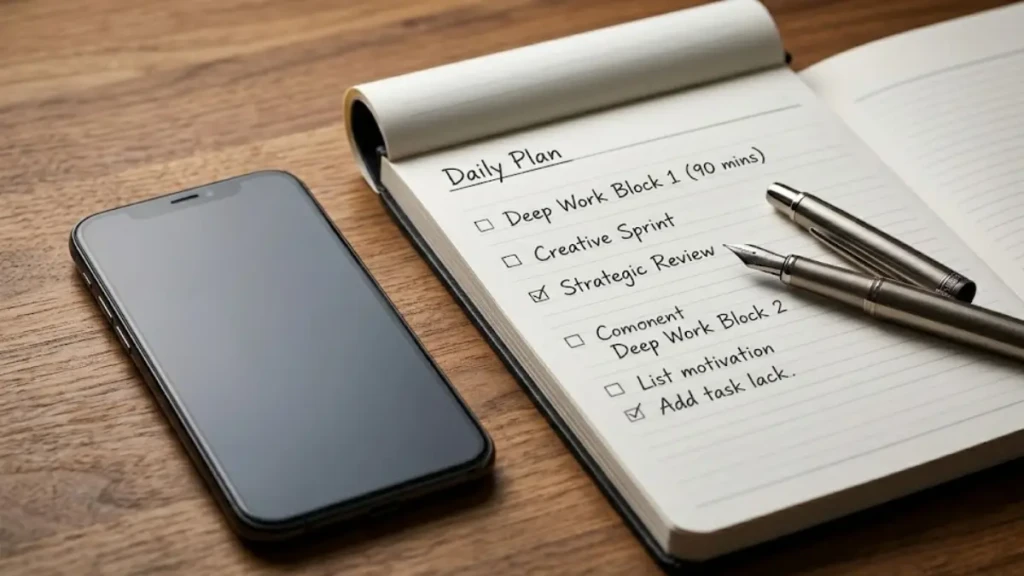 Daily Plan
Deep Work Block 1 (90 mins)
Creative Sprint
Strategic Review
Comonent
Deep Work Block 2
List motivation
Add task lack.